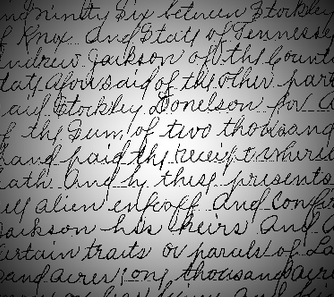 and Ninety Six between Stockley
of Knox and State of Tennessee
Andrew Jackson of the County
State aforesaid of the other part
said Stockley Donelson for
of the Sum of two thousand
hand paid the receipt where
hath And by these presents
alien enfeoff and Confir
Jackson his heirs And
Certain traits or parcels of La
sand acres one thousand acre